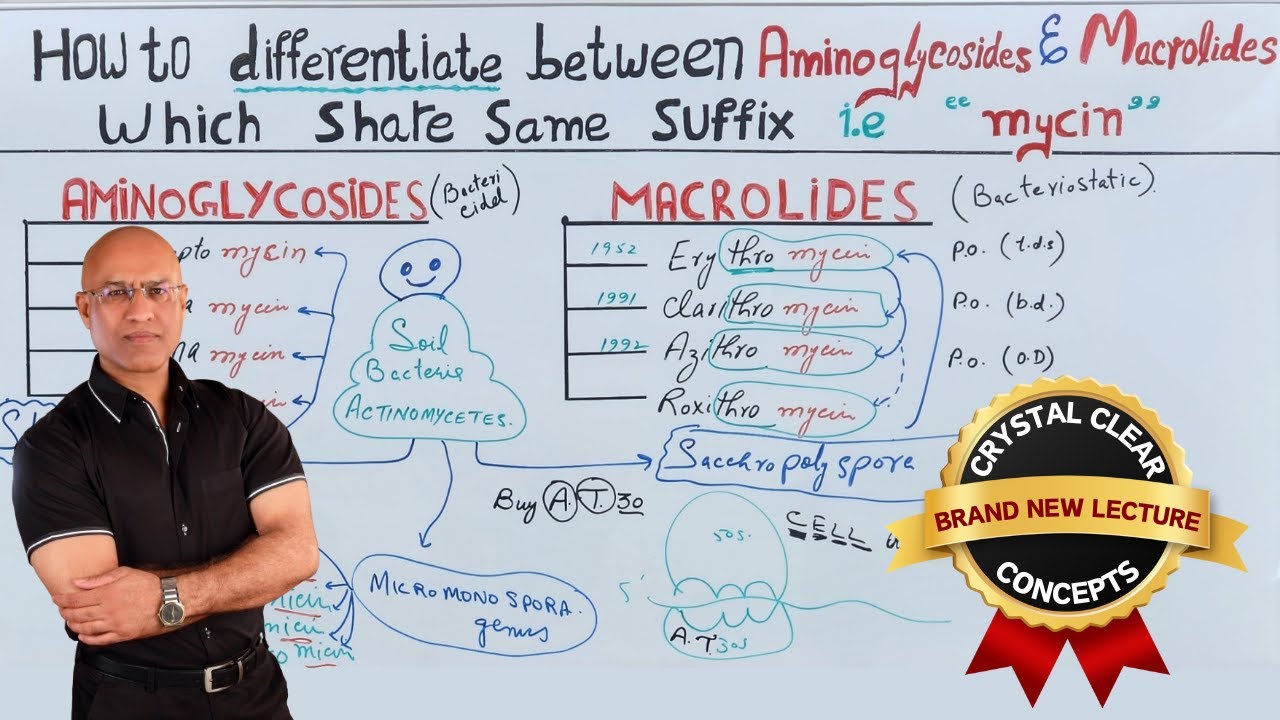 How to differentiate between Aminoglycosides & Macrolides
Which Share Same Suffix i.e "mycin"
AMINOGLYCOSIDES (Bactericidal)
pto mycin
a mycin
a mycin
MACROLIDES (Bacteriostatic).
1952 Erythro mycin P.o. (t.d.s)
1991 Clarithro mycin P.o. (b.d.)
1992 Azithro mycin P.o. (O.D)
Roxithro mycin
Soil
Bacteria
ACTINOMYCETES.
Sacchropolyspora
Buy A.T. 30
CELL
50S.
5'
A.T. 30S
MICROMONOSPORA.
genus
micin
micin
o micin
CRYSTAL CLEAR
BRAND NEW LECTURE
CONCEPTS